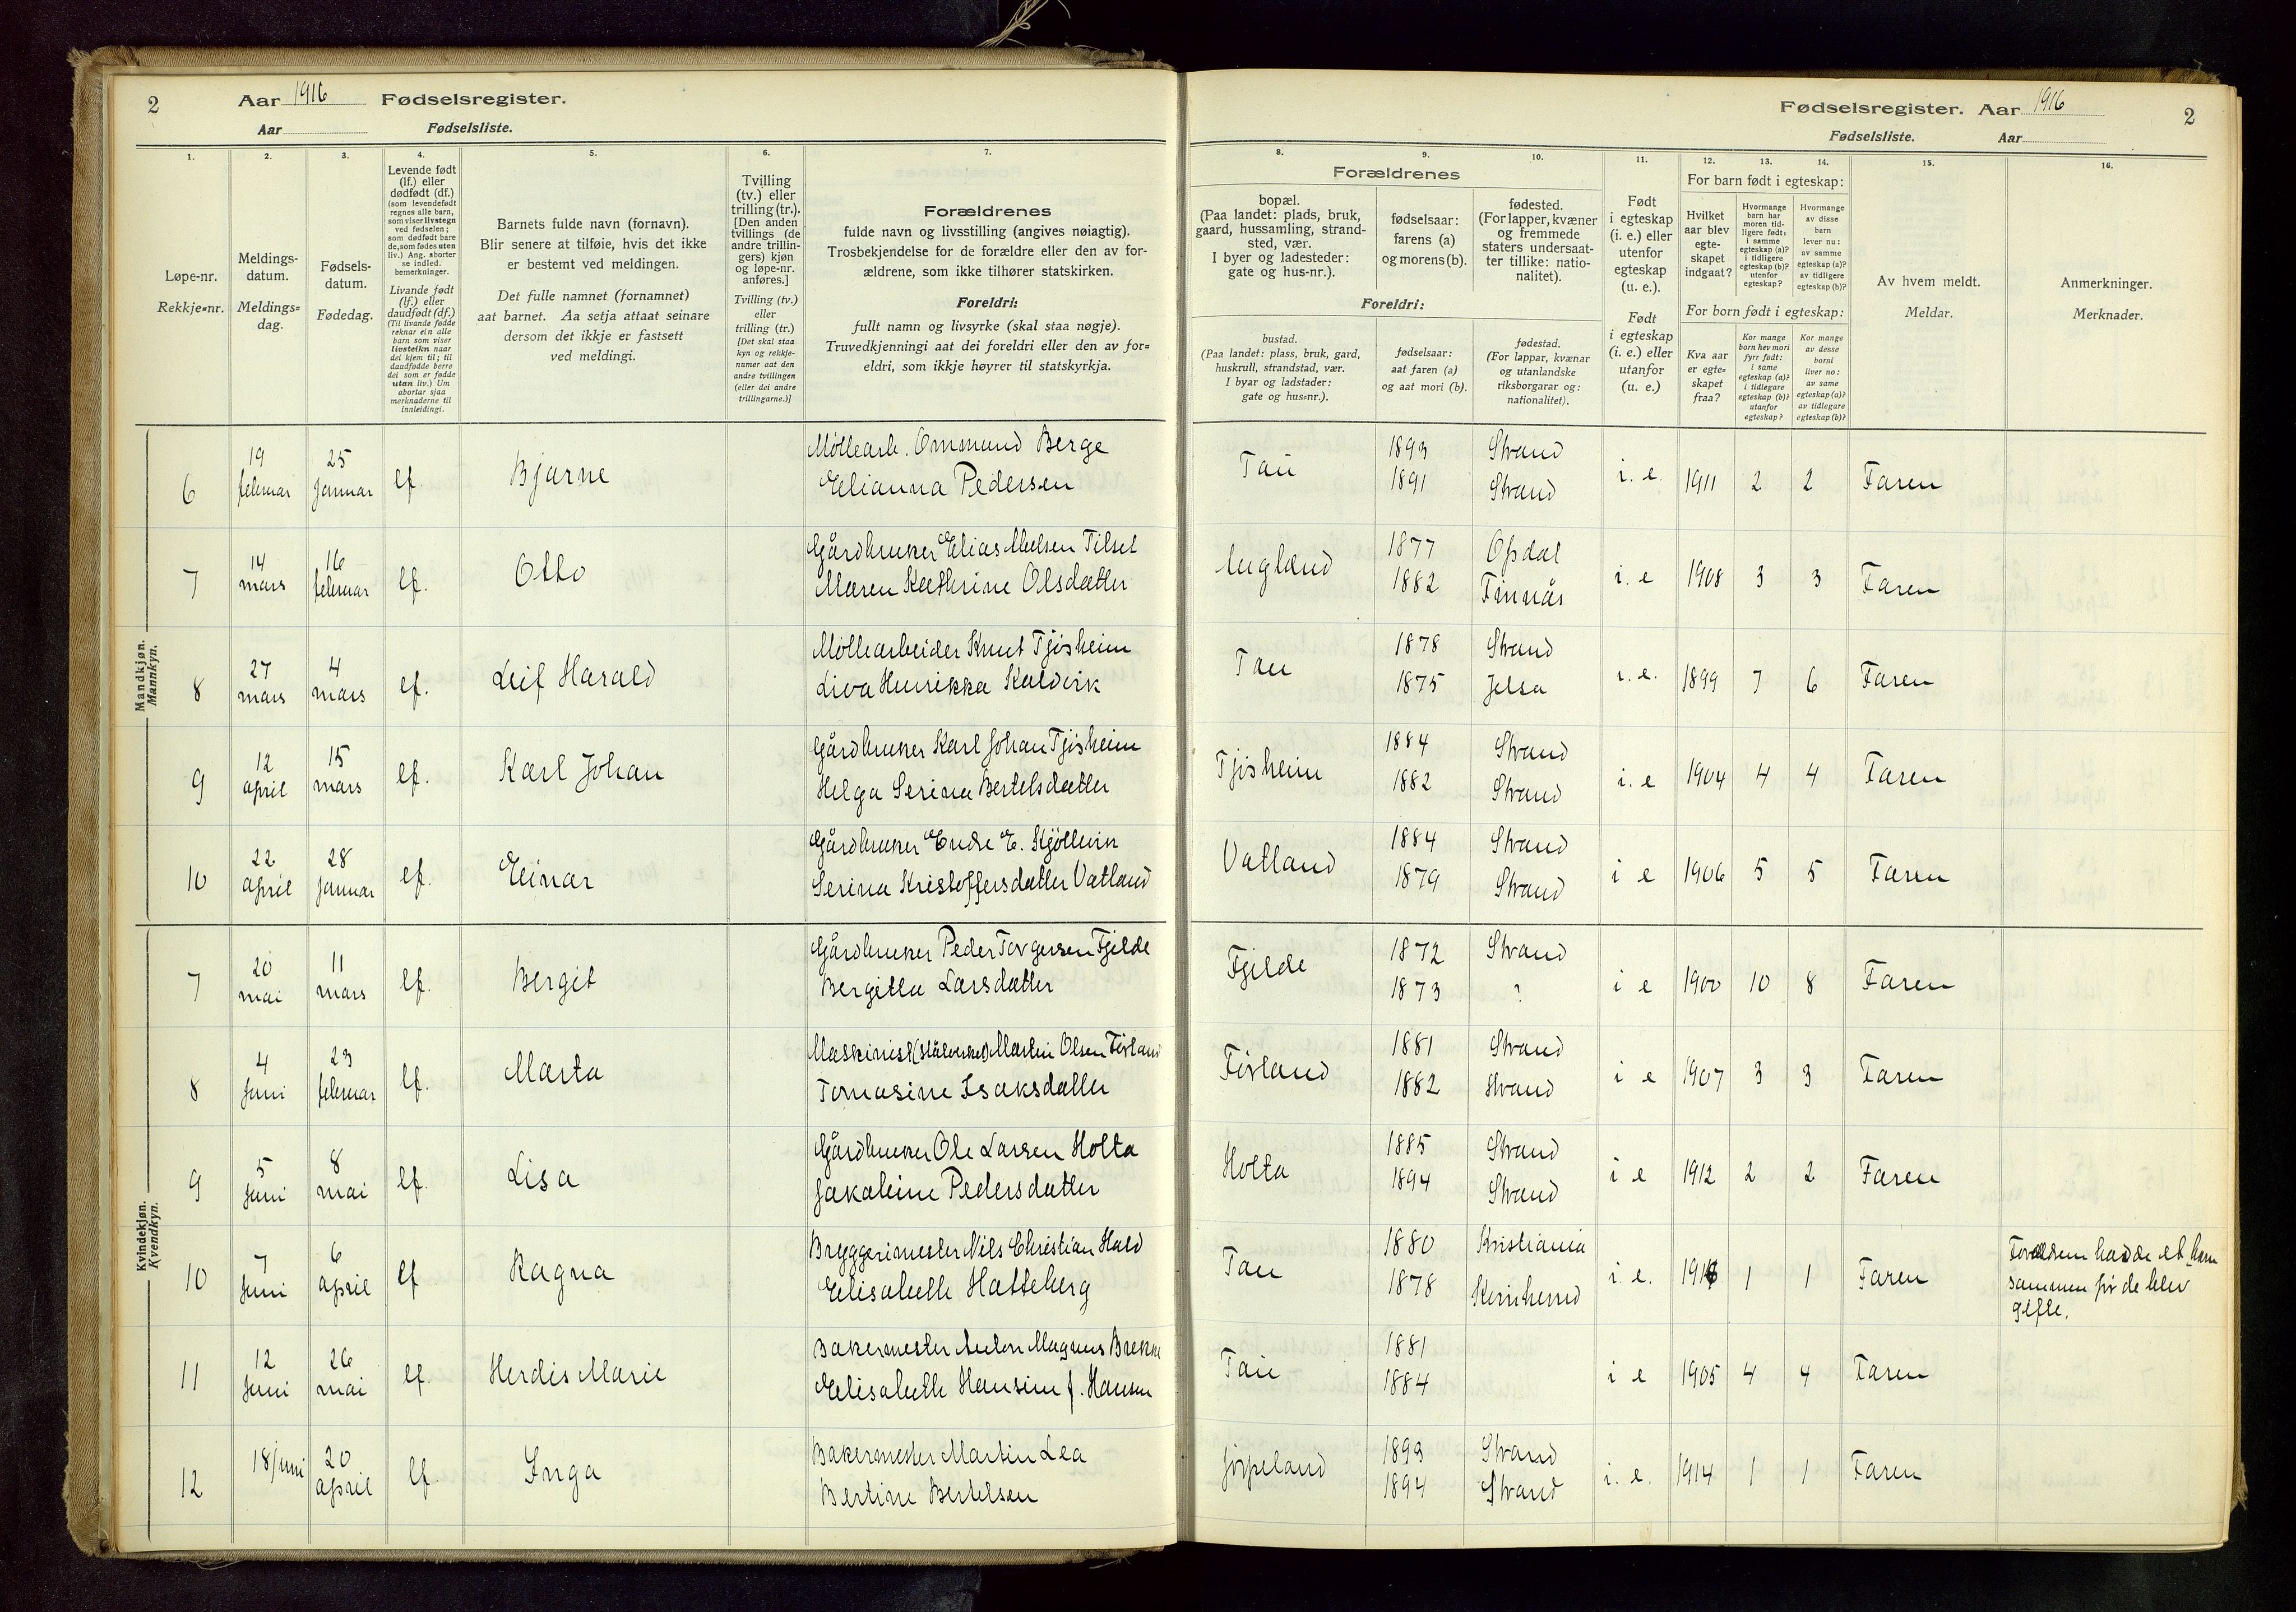 2
Aar 1916 Fødselsregister.
Aar Fødselsliste.
Fødselsregister. Aar 1916
2
Fødselsliste. Aar
1.
2.
3.
4.
5.
6.
7.
Løpe-nr.
Rekkje=nr.
Meldings-
datum.
Meldings=
dag.
Fødsels-
datum.
Fødedag.
Levende født
(lf.) eller
dødfødt (df.)
(som levendefødt
regnes alle barn,
som viser livstegn
ved fødselen;
som dødfødt bare
de, som fødes uten
liv.) Ang. aborter
se indled.
bemerkninger.
Livande født
(lf.) eller
daudfødt (df.)
(Til livande fødde
reknar ein alle
barn som viser
livsteikn naar
dei kjem til; til
daudfødde berre
dei som er fødde
utan liv.) Um
abortar sjaa
merknaderne til
innleidingi.
Barnets fulde navn (fornavn).
Blir senere at tilføie, hvis det ikke
er bestemt ved meldingen.
Det fulle namnet (fornamnet)
aat barnet. Aa setja attaat seinare
dersom det ikkje er fastsett
ved meldingi.
Tvilling
(tv.) eller
trilling (tr.).
[Den anden
tvillings (de
andre trillin-
gers) kjøn
og løpe-nr.
anføres.]
Tvilling (tv.)
eller
trilling (tr.)
[Det skal staa
kyn og rekkje-
numer aat den
andre tvillingen
(eller dei andre
trillingarne.)]
Forældrenes
fulde navn og livsstilling (angives nøiagtig).
Trosbekjendelse for de forældre eller den av for-
ældrene, som ikke tilhører statskirken.
Foreldri:
fullt namn og livsyrke (skal staa nøgje).
Truvedkjenningi aat dei foreldri eller den av for=
eldri, som ikkje høyrer til statskyrkja.
8.
9.
10.
11.
12.
13.
14.
15.
16.
Forældrenes
bopæl.
(Paa landet: plads, bruk,
gaard, hussamling, strand-
sted, vær.
I byer og ladesteder:
gate og hus-nr.).
fødselsaar:
farens (a)
og morens (b).
fødested.
(For lapper, kvæner
og fremmede
staters undersaat-
ter tillike: natio-
nalitet).
Foreldri:
bustad.
(Paa landet: plass, bruk, gard,
huskrull, strandstad, vær.
I byar og ladstader:
gate og hus=nr.).
fødselsaar:
aat faren (a)
og aat mori (b).
fødestad.
(For lappar, kvænar
og utanlandske
riksborgarar og:
nationalitet).
Født
i egteskap
(i. e.) eller
utenfor
egteskap
(u. e.).
Født
i egteskap
(i. e.) eller
utanfor
(u. e.)
For barn født i egteskap:
Hvilket
aar blev
egte-
skapet
indgaat?
Hvormange
barn har
moren tid-
ligere født:
i samme
egteskap (a)?
i tidligere
egteskap (b)?
utenfor
egteskap?
Hvormange
av disse
barn
lever nu:
av samme
egteskap (a)?
av tidligere
egteskap (b)?
For born født i egteskap:
Kva aar
er egte=
skapet
fraa?
Kor mange
born hev mori
fyrr født:
i same
egteskap (a)?
i tidlegare
egteskap (b)?
utanfor
egteskap?
Kor mange
av desse
borni
liver no:
av same
egteskap (a)?
av tidlegare
egteskap (b)?
Av hvem meldt.
Meldar.
Anmerkninger.
Merknader.
Mandkjøn.
Mannkyn.
6 19 februar 25 januar lf. Bjarne Møllearb. Ommund Berge Tau 1893 Strand i. e. 1911 2 2 Faren
Elianna Pedersen 1891 Strand
7 14 mars 16 februar lf. Otto Gårdbruker Elias Tilset 1877 Opdal i. e 1908 3 3 Faren
Maren Kathrine Olsdatter 1882 Finnås
8 27 mars 4 mars lf. Leif Harald Møllearbeider Knut Tjøsheim Tau 1878 Strand i. e. 1899 7 6 Faren
Henrikka Kaldvik 1875 Jelsa
9 12 april 15 mars lf. Karl Johan Gårdbruker Karl Johan Tjøsheim Tjøsheim 1884 Strand i. e 1904 4 4 Faren
Helga Serina Bertelsdatter 1882 Strand
10 22 april 28 januar lf. Einar Gårdbruker Endre E. Vatland 1884 Strand i e 1906 5 5 Faren
Serina Kristoffersdatter Vatland 1879 Strand
Kvindekjøn.
Kvendkyn.
7 20 mai 11 mars lf. Bergit Gårdbruker Peder Torgersen Fjelde Fjelde 1872 Strand i e 1900 10 8 Faren
Bergitta Larsdatter 1873 ?
8 4 Juni 23 februar lf. Marta Maskinist (stålverket) Martin Olsen Førland Førland 1881 Strand i e 1907 3 3 Faren
Tomasine Isaksdatter 1882 Strand
9 5 Juni 8 mai lf. Lisa Gårdbruker Ole Larsen Holta Holta 1885 Strand i e 1912 2 2 Faren
Jakobine Pedersdatter 1894 Strand
10 7 Juni 6 april lf Ragna Bryggerimester Nils Christian Hald Tau 1880 Kristiania i. e. 1 1 Faren Forældrene hadde et barn
Elisabeth Hatteberg 1878 Kvinherred sammen før de blev
gifte.
11 12 Juni 26 mai lf. Herdis Marie Bakermester Anton Magnus Brekke Tau 1881 i e 1905 4 4 Faren
Elisabeth Hansine f. Hansen 1884
12 18/juni 20 april lf. Inga Bakermester Martin Lea Jørpeland 1893 Strand i. e. 1914 1 1 Faren
Bertine Bertelsen 1894 Strand